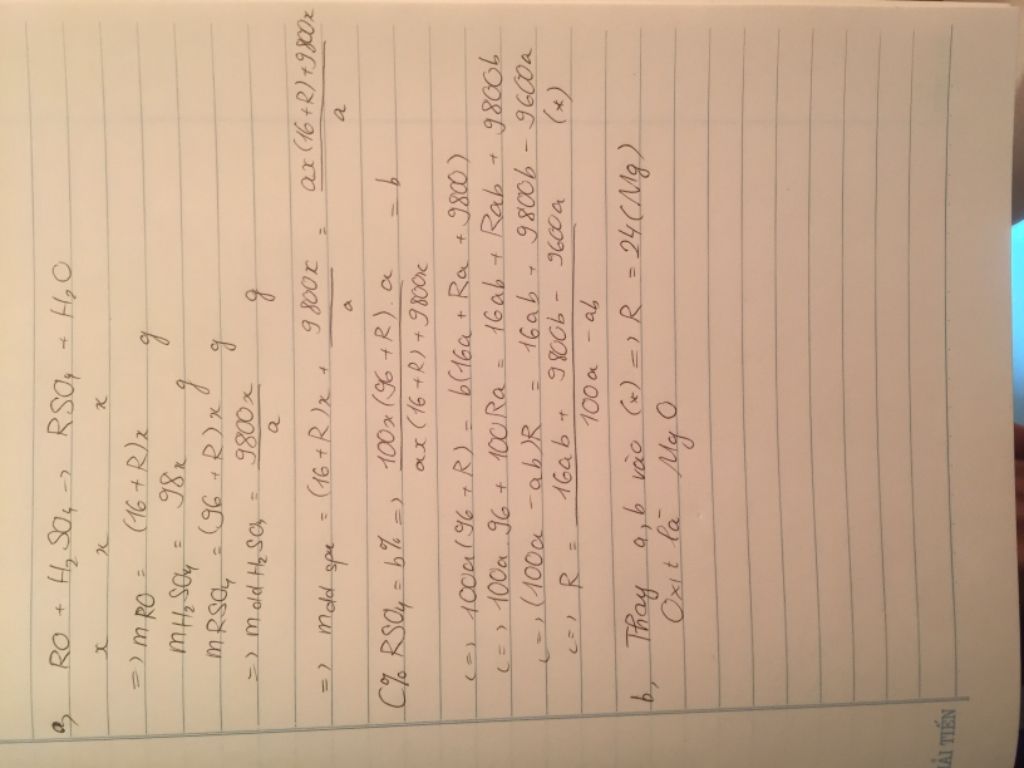 a, RO + H₂SO₄ → RSO₄ + H₂O
x x x x
=> mRO = (16+R)x g
mH₂SO₄ = 98x g
mRSO₄ = (96+R)x g
=> mddH₂SO₄ = 9800x/a g
=> mdd spư = (16+R)x + 9800x/a = ax(16+R)+9800x/a
C% RSO₄ = b% => 100x(96+R).a/ax(16+R)+9800x = b
<=> 100a(96+R) = b(16a + Ra + 9800)
<=> 100a96 + 100Ra = 16ab + Rab + 9800b
<=> (100a - ab)R = 16ab + 9800b - 9600a
<=> R = 16ab + 9800b - 9600a/100a - ab (*)
b, Thay a, b vào (*) => R = 24 (Mg)
Oxit là MgO
ẢI TIẾN